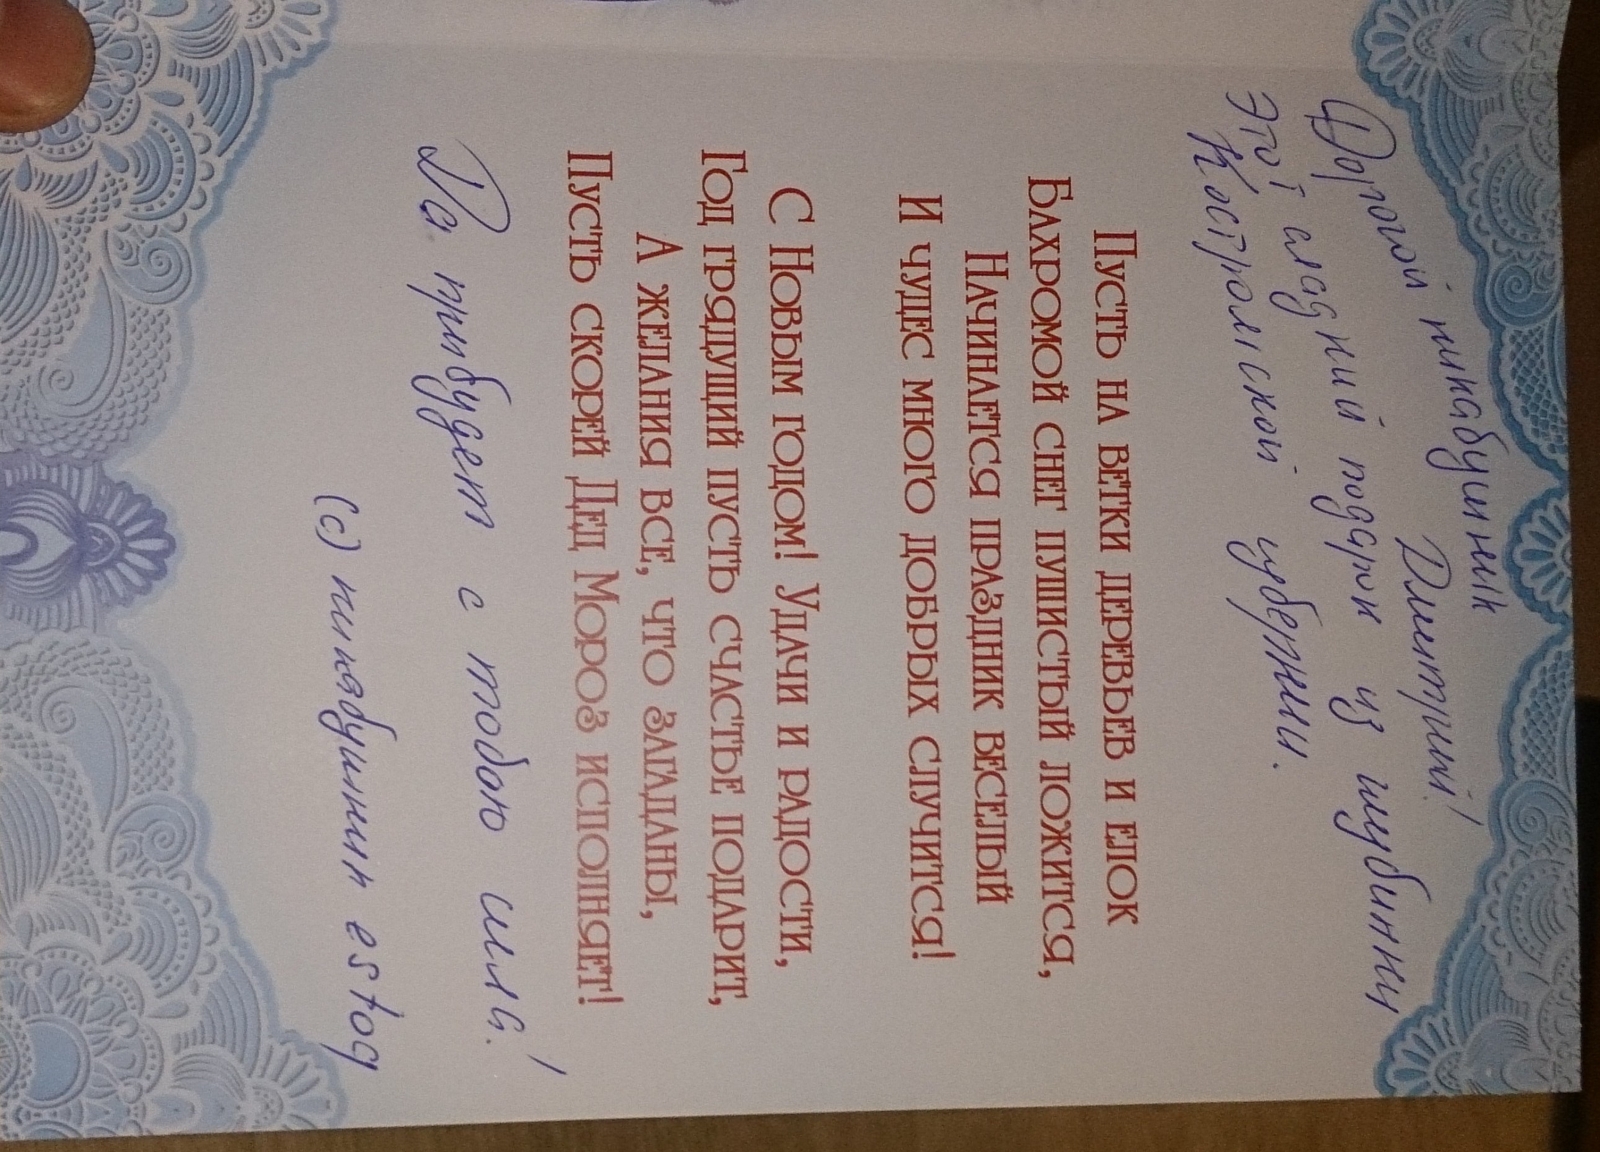 Дорогой пикабушник
Дмитрий!
Этот сладкий подгон из глубинки
Костромской губернии.
Пусть на ветки деревьев и елок
Бахромой снег пушистый ложится,
Начинается праздник веселый
И чудес много добрых случится!
С Новым годом! Удачи и радости,
Год грядущий пусть счастье подарит,
А желания все, что загаданы,
Пусть скорей Дед Мороз исполняет!
Да прибудет с тобою сила!
(с) пикабушник estog